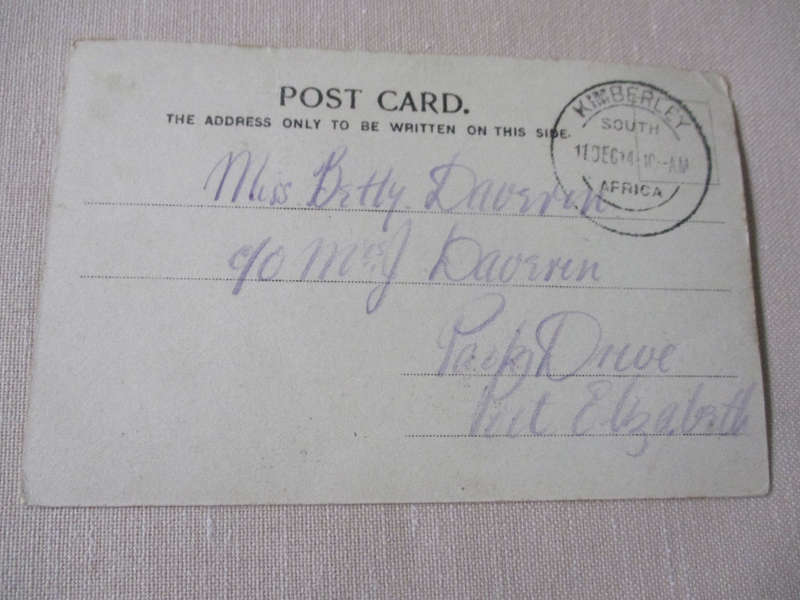 POST CARD.
THE ADDRESS ONLY TO BE WRITTEN ON THIS SIDE.
KIMBERLEY
SOUTH
11 DEC 14 10-AM
AFRICA
Miss Betty Daveren
c/o Mrs J Daveren
Park Drive
Port Elizabeth